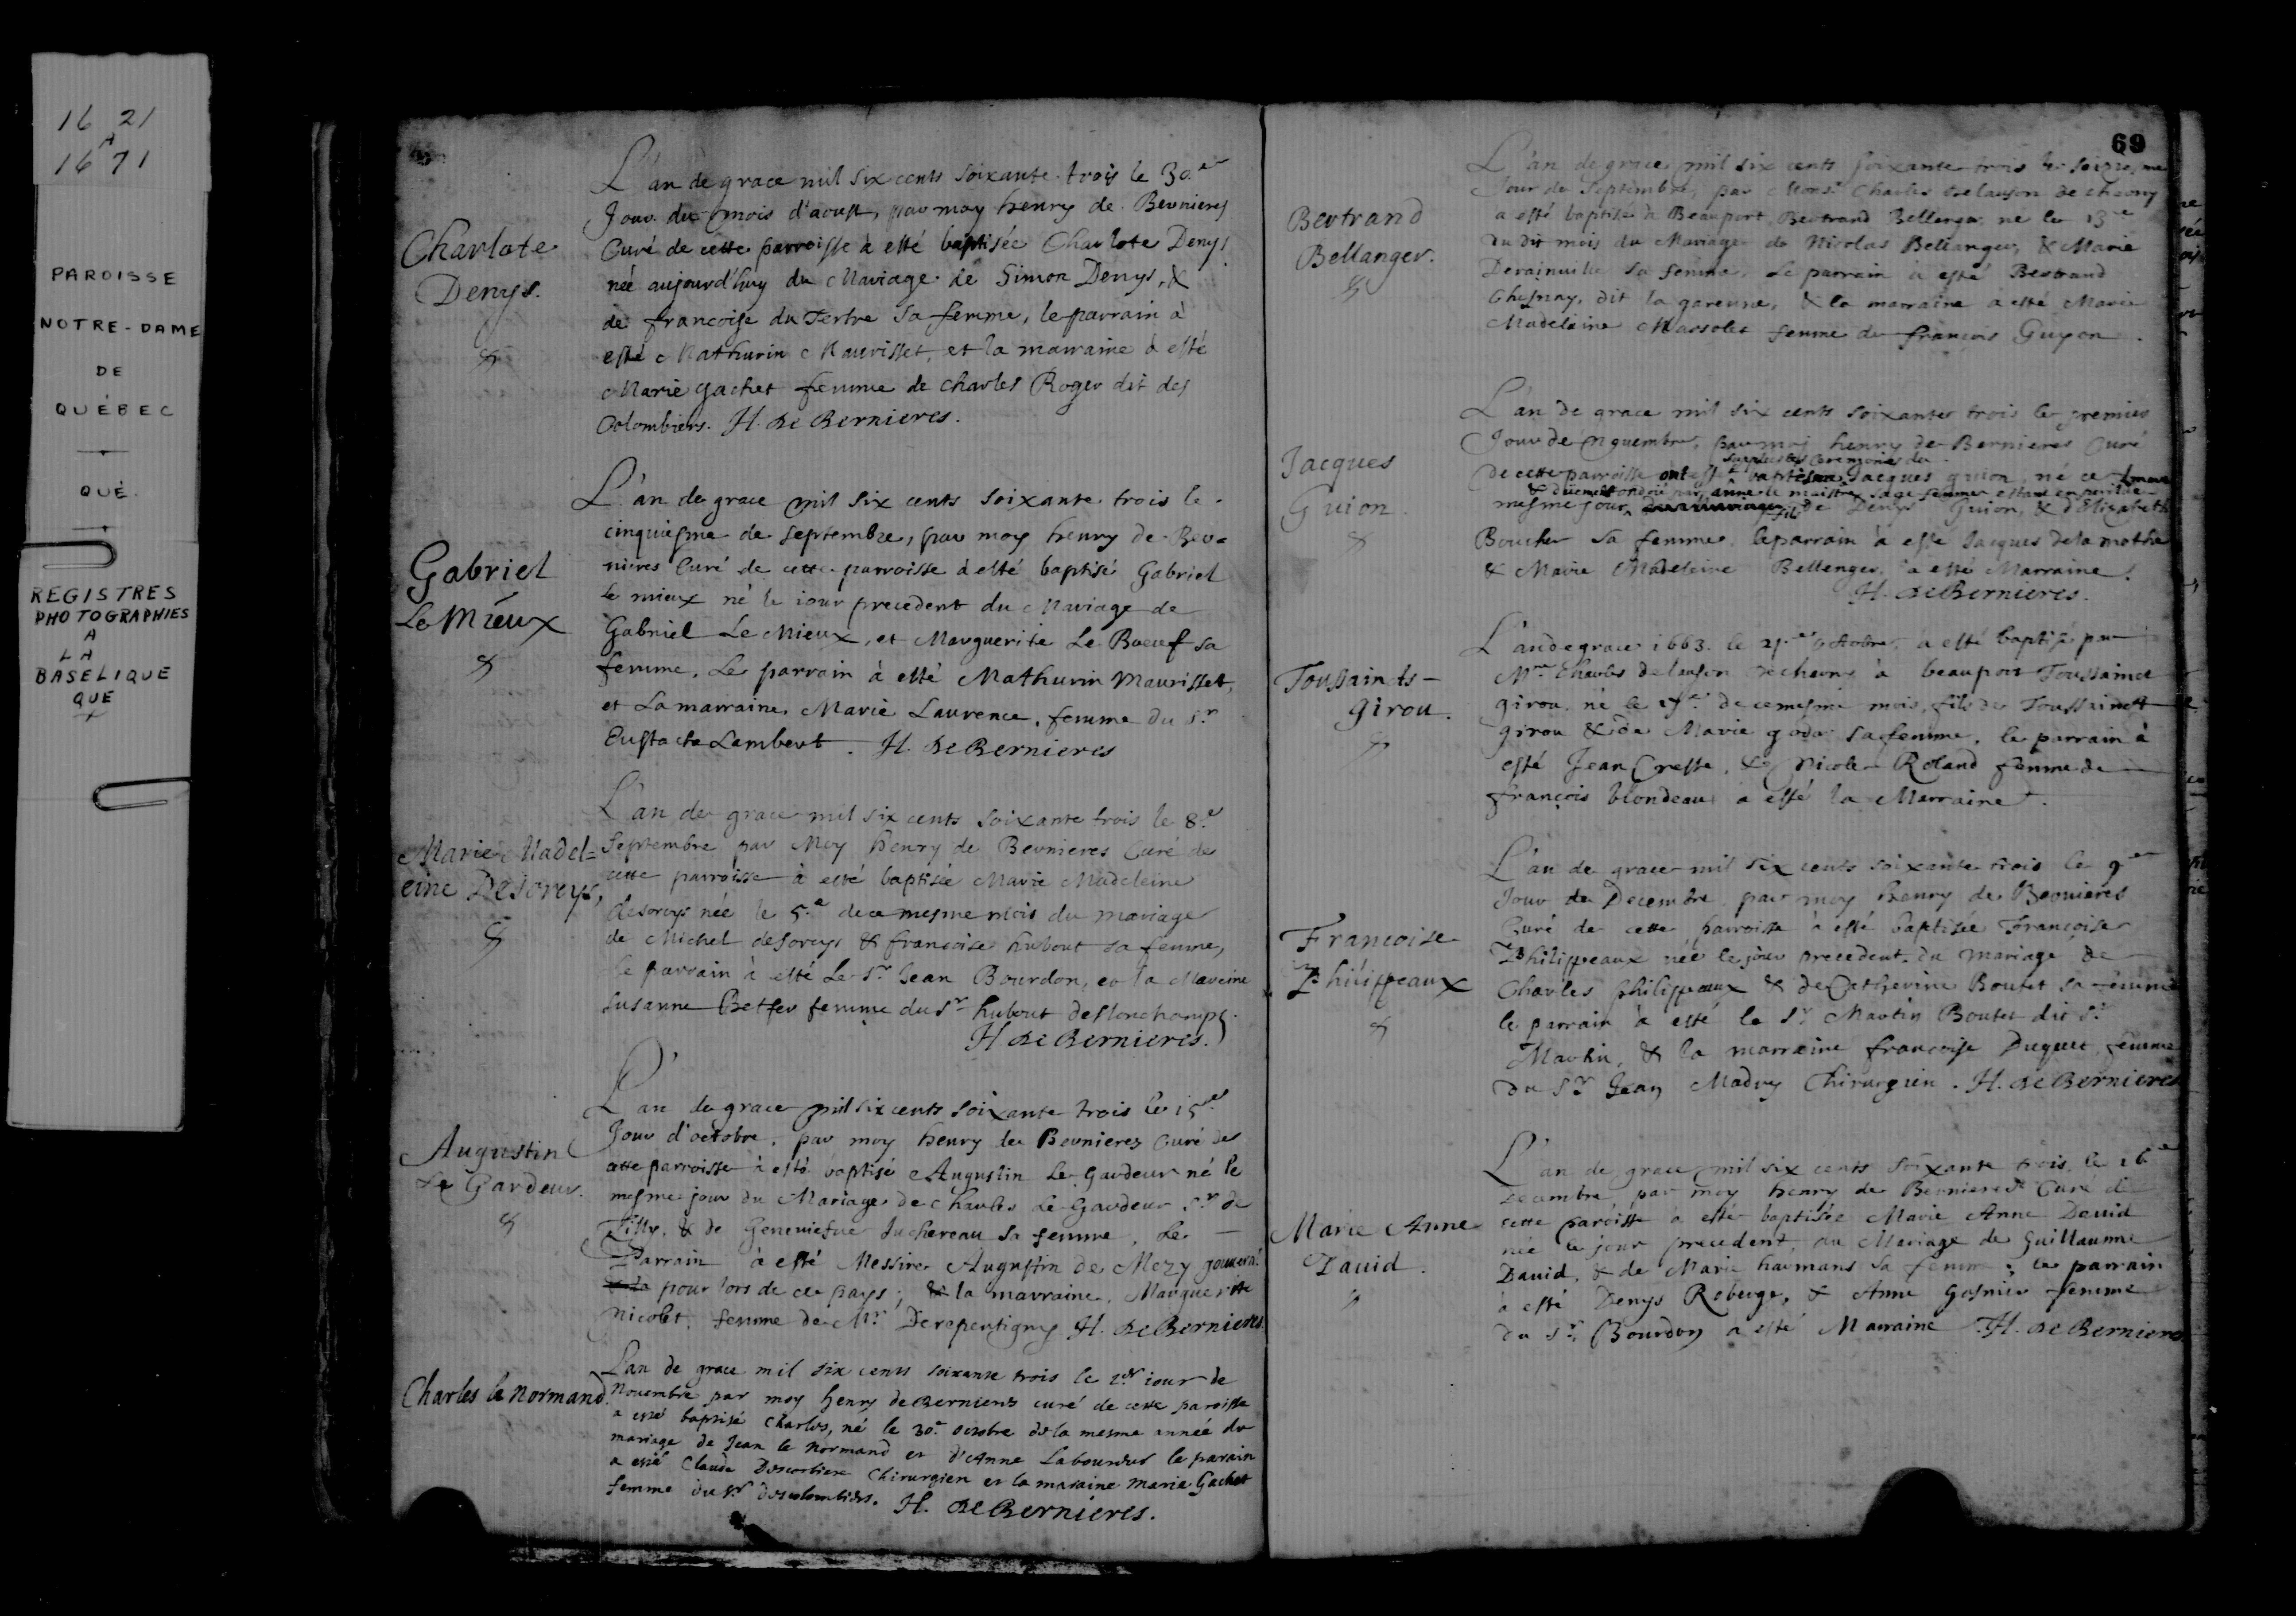 16 21
A
16 71
PAROISSE
NOTRE-DAME
DE
QUÉBEC
QUÉ.
REGISTRES
PHOTOGRAPHIES
A
LA
BASELIQUE
QUE
Charlote
Denys.
L'an de grace mil six cents soixante trois le 30.e
Jour du mois d'aoust, par moy henry de Bernieres
Curé de cette parroisse à esté baptisée Charlote Denys
née aujourd'huy du Mariage de Simon Denys, &
de francoise du Tertre sa femme, le parrain à
esté Mathurin Maurisset, et la marraine à esté
Marie gachet femme de charles Roger dit des
Colombiers. H. de Bernieres.
Gabriel
Le Mieux
L'an de grace mil six cents soixante trois le
cinquiesme de septembre, par moy henry de Ber=
nieres Curé de cette parroisse à esté baptisé Gabriel
le mieux né le iour precedent du Mariage de
Gabriel Le Mieux, et Marguerite Le Boeuf sa
femme, Le parrain à esté Mathurin Maurisset,
et La marraine, Marie Laurence, femme du Sr
Eustache Lambert. H. de Bernieres
Marie Madel=
eine Desorcys,
L'an de grace mil six cents soixante trois le 8.e
Septembre par Moy henry de Bernieres Curé de
cette parroisse à esté baptisée Marie Madeleine
desorcys née le 5.e de ce mesme mois du mariage
de Michel desorcys & francoise hubout sa femme,
le parrain à esté Le Sr Jean Bourdon, et la Mareine
Susanne Betfer femme du Sr hubout deslonchamps.
H de Bernieres.
Augustin
Le Gardeur.
L'an de grace mil six cents soixante trois le 15.e
Jour d'octobre, par moy henry de Bernieres Curé de
cette parroisse à esté baptisé Augustin Le Gardeur né le
mesme jour du Mariage de Charles Le Gardeur Sr de
Tilly, & de Geneuiefue Juchereau sa femme, Le
Parrain à esté Messire Augustin de Mezy gouuern.r
pour lors de ce pays; & la marraine, Marguerite
Nicolet, femme de Mr Derepentigny H. de Bernieres.
Charles le normand.
L'an de grace mil six cents soixante trois le 1er iour de
Nouembre par moy henry de Bernieres curé de cette paroisse
a esté baptisé Charles, né le 30.e octobre de la mesme année du
mariage de Jean le Normand et d'Anne Labourdes le parain
a esté Claude Chirurgien et la maraine Marie Gachet
femme du Sr descolombiers. H. de Bernieres.
69
Bertrand
Bellanger.
L'an de grace mil six cents soixante trois le seiziesme
Jour de Septembre, par Monsr Charles de lauson de charny
a esté baptisé à Beauport Bertrand Bellenger né le 13.e
du dit mois du Mariage de Nicolas Bellanger, & Marie
Derainuille sa femme, Le parrain à esté Bertrand
Chesnay, dit la garenne, & la marraine à esté Marie
Madeleine Massolet femme de françois Guyon.
Jacques
Guion.
L'an de grace mil six cents soixante trois le premier
Jour de Nouembre, par moy henry de Bernieres Curé
supplées les ceremonies du
de cette parroisse ont esté baptesme Jacques guion, né ce
& duement ondoié par anne le maistre sage femme estant en peril de
mesme jour, fils de Denys Guion, & d'Elizabeth
Boucher sa femme, le parrain à esté Jacques de la mothe
& Marie Madeleine Bellenger, a esté Marraine.
H. de Bernieres.
Toussaincts
girou.
L'an de grace 1663. le 21.e octobre, a esté baptisé par
Mre Charles de lauson de charny à beauport Toussainct
girou né le de ce mesme mois, fils de Toussainct
girou & de Marie godar sa femme, le parrain à
esté Jean Creste, & Nicole Roland femme de
françois blondeau a esté la Marraine.
Francoise
Philippeaux
L'an de grace mil six cents soixante trois le 9.e
Jour de Decembre par moy henry de Bernieres
Curé de cette parroisse à esté baptisée Françoise
Philippeaux née le jour precedent du mariage de
Charles philippeaux & de Catherine Boutet sa femme
le parrain à esté le Sr Martin Boutet dit St
Martin, & la marraine francoise Duquet femme
du Sr Jean Madry Chirurgien. H. de Bernieres
Marie Anne
Dauid.
L'an de grace mil six cents soixante trois, le 16.e
Decembre par moy henry de Bernieres Curé de
cette paroisse à esté baptisée Marie Anne Dauid
née le jour precedent, du Mariage de Guillaume
Dauid, & de Marie harmans sa femme; le parrain
à esté Denys Roberge, & Anne Gasnier femme
du Sr Bourdon a esté Marraine H. de Bernieres